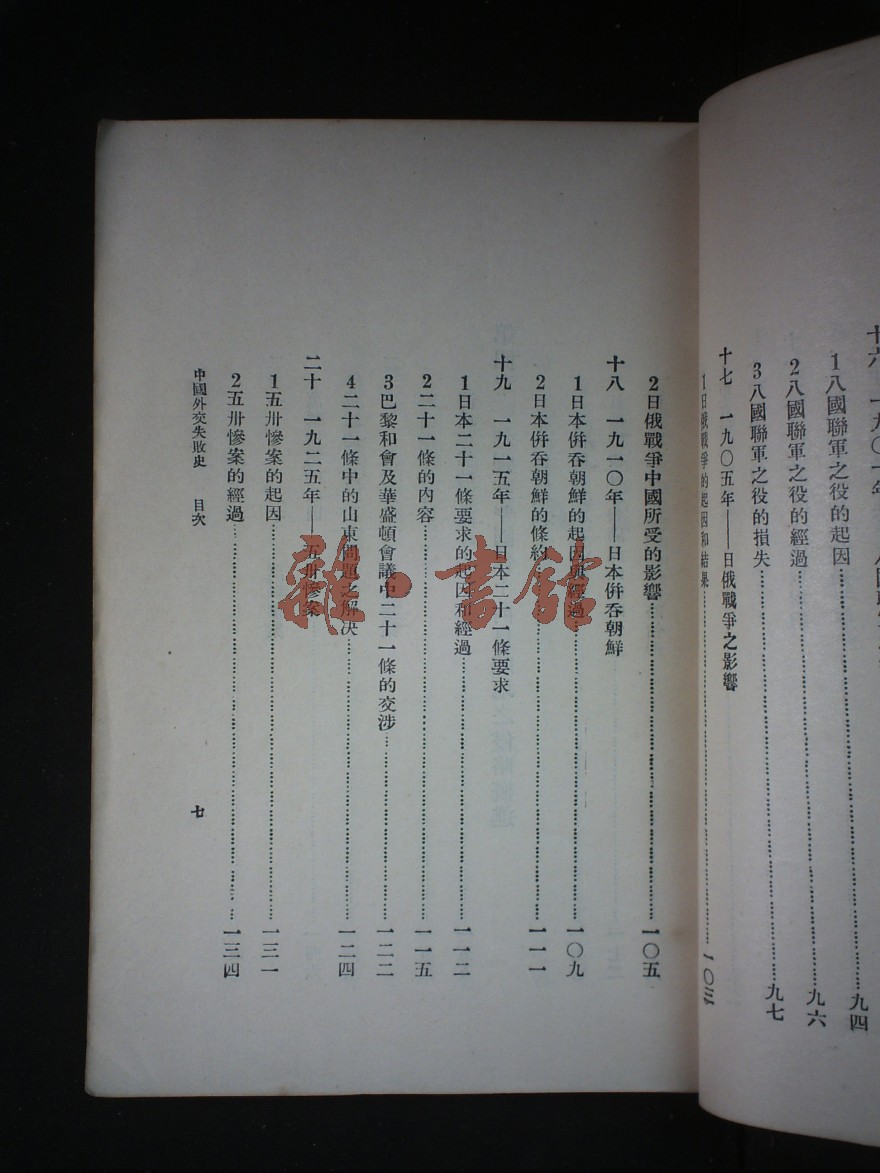 十六 一九〇一年——八國聯
1八國聯軍之役的起因……九四
2八國聯軍之役的經過……九六
3八國聯軍之役的損失……九七
十七 一九〇五年——日俄戰爭之影響
1日俄戰爭的起因和結果……一〇三
2日俄戰爭中國所受的影響……一〇五
十八 一九一〇年——日本併吞朝鮮
1日本併吞朝鮮的起因與經過……一〇九
2日本併吞朝鮮的條約……一一一
十九 一九一五年——日本二十一條要求
1日本二十一條要求的起因和經過……一一二
2二十一條的內容……一一五
3巴黎和會及華盛頓會議中二十一條的交涉……一二二
4二十一條中的山東問題之解决……一二四
二十 一九二五年——五卅慘案
1五卅慘案的起因……一三一
2五卅慘案的經過……一三四
中國外交失敗史 目次
七
雜·書館